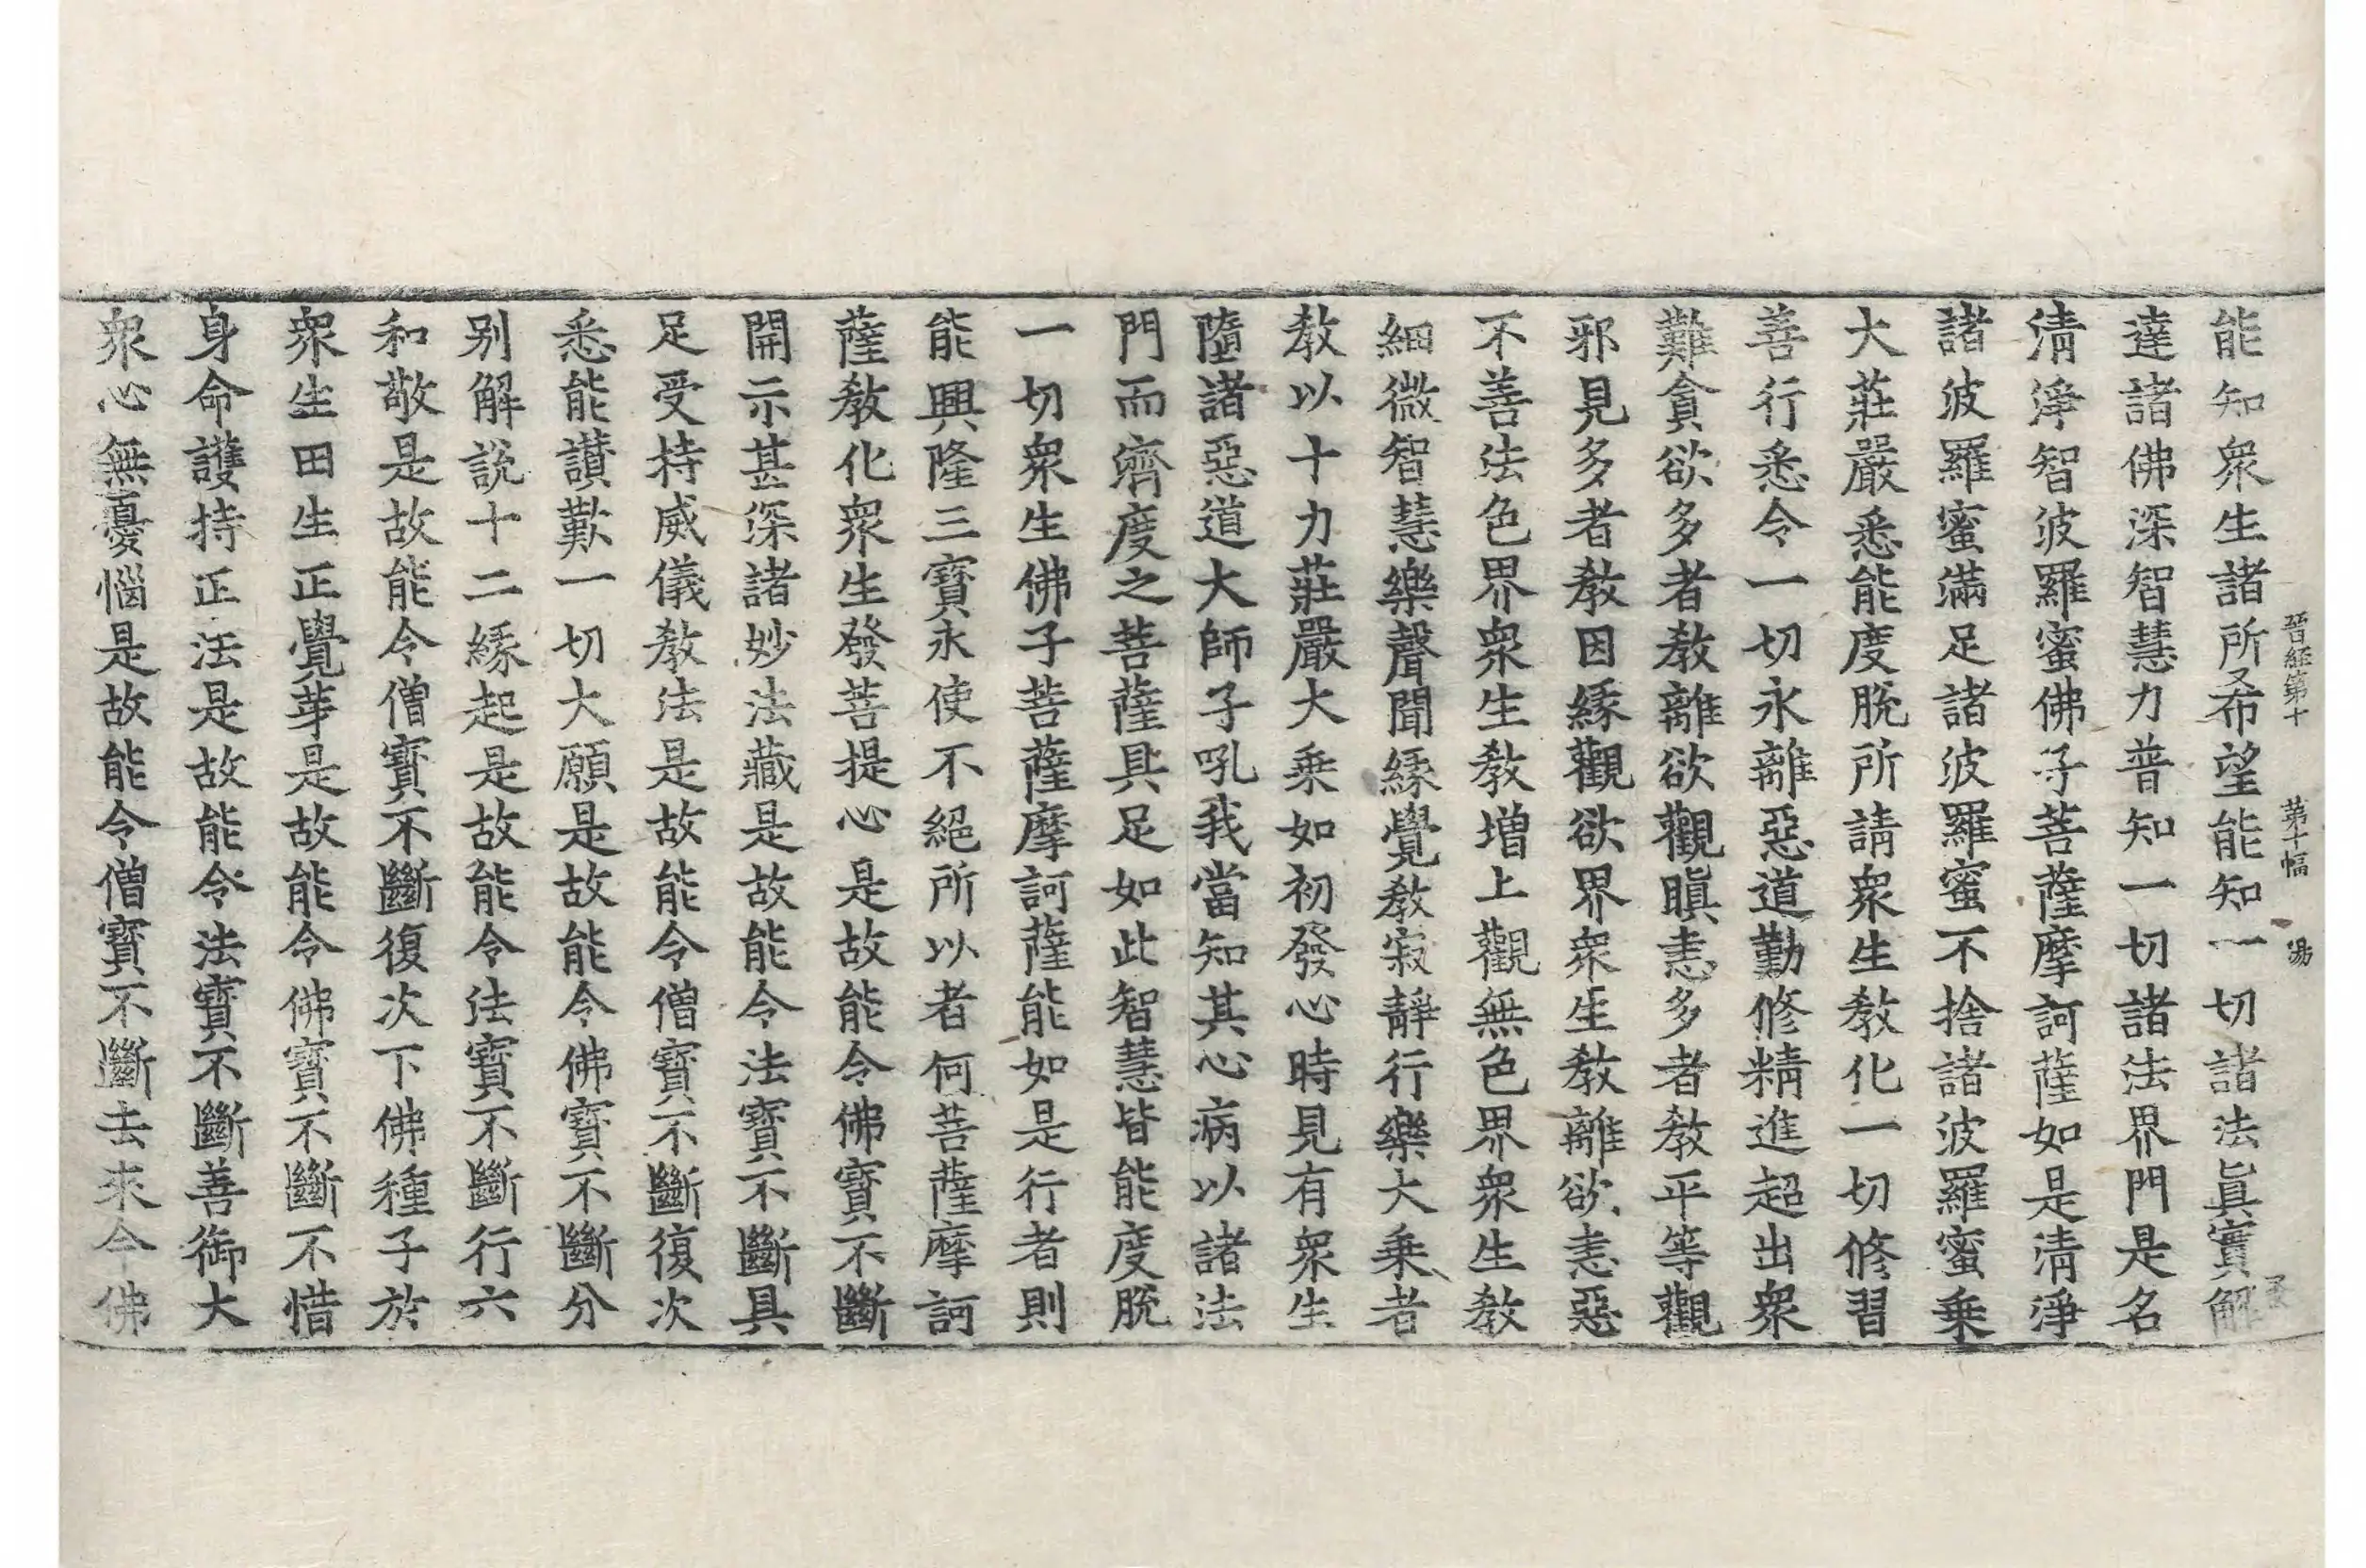 晉経第十 第十幅 湯
能知衆生諸所希望能知一切諸法眞實解
達諸佛深智慧力普知一切諸法界門是名
清淨智波羅蜜佛子菩薩摩訶薩如是清淨
諸波羅蜜滿足諸波羅蜜不捨諸波羅蜜乗
大莊嚴悉能度脱所請衆生教化一切修習
善行悉令一切永離惡道勤修精進超出衆
難貪欲多者教離欲觀瞋恚多者教平等觀
邪見多者教因縁觀欲界衆生教離欲恚惡
不善法色界衆生教增上觀無色界衆生教
細微智慧樂聲聞縁覺教寂靜行樂大乗者
教以十力莊嚴大乗如初發心時見有衆生
墮諸惡道大師子吼我當知其心病以諸法
門而濟度之菩薩具足如此智慧皆能度脱
一切衆生佛子菩薩摩訶薩能如是行者則
能興隆三寶永使不絕所以者何菩薩摩訶
薩教化衆生發菩提心是故能令佛寶不斷
開示甚深諸妙法藏是故能令法寶不斷具
足受持威儀教法是故能令僧寶不斷復次
悉能讃歎一切大願是故能令佛寶不斷分
别解説十二縁起是故能令法寶不斷行六
和敬是故能令僧寶不斷復次下佛種子於
衆生田生正覺芽是故能令佛寶不斷不惜
身命護持正法是故能令法寶不斷善御大
衆心無憂惱是故能令僧寶不斷去來今佛